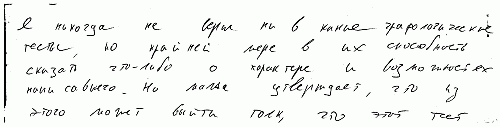 Я никогда не верил ни в какие графологические
тесты, по крайней мере в их способность
сказать что-либо о характере и возможностях
написавшего. Но папа утверждает, что из
этого может выйти толк, что этот тест